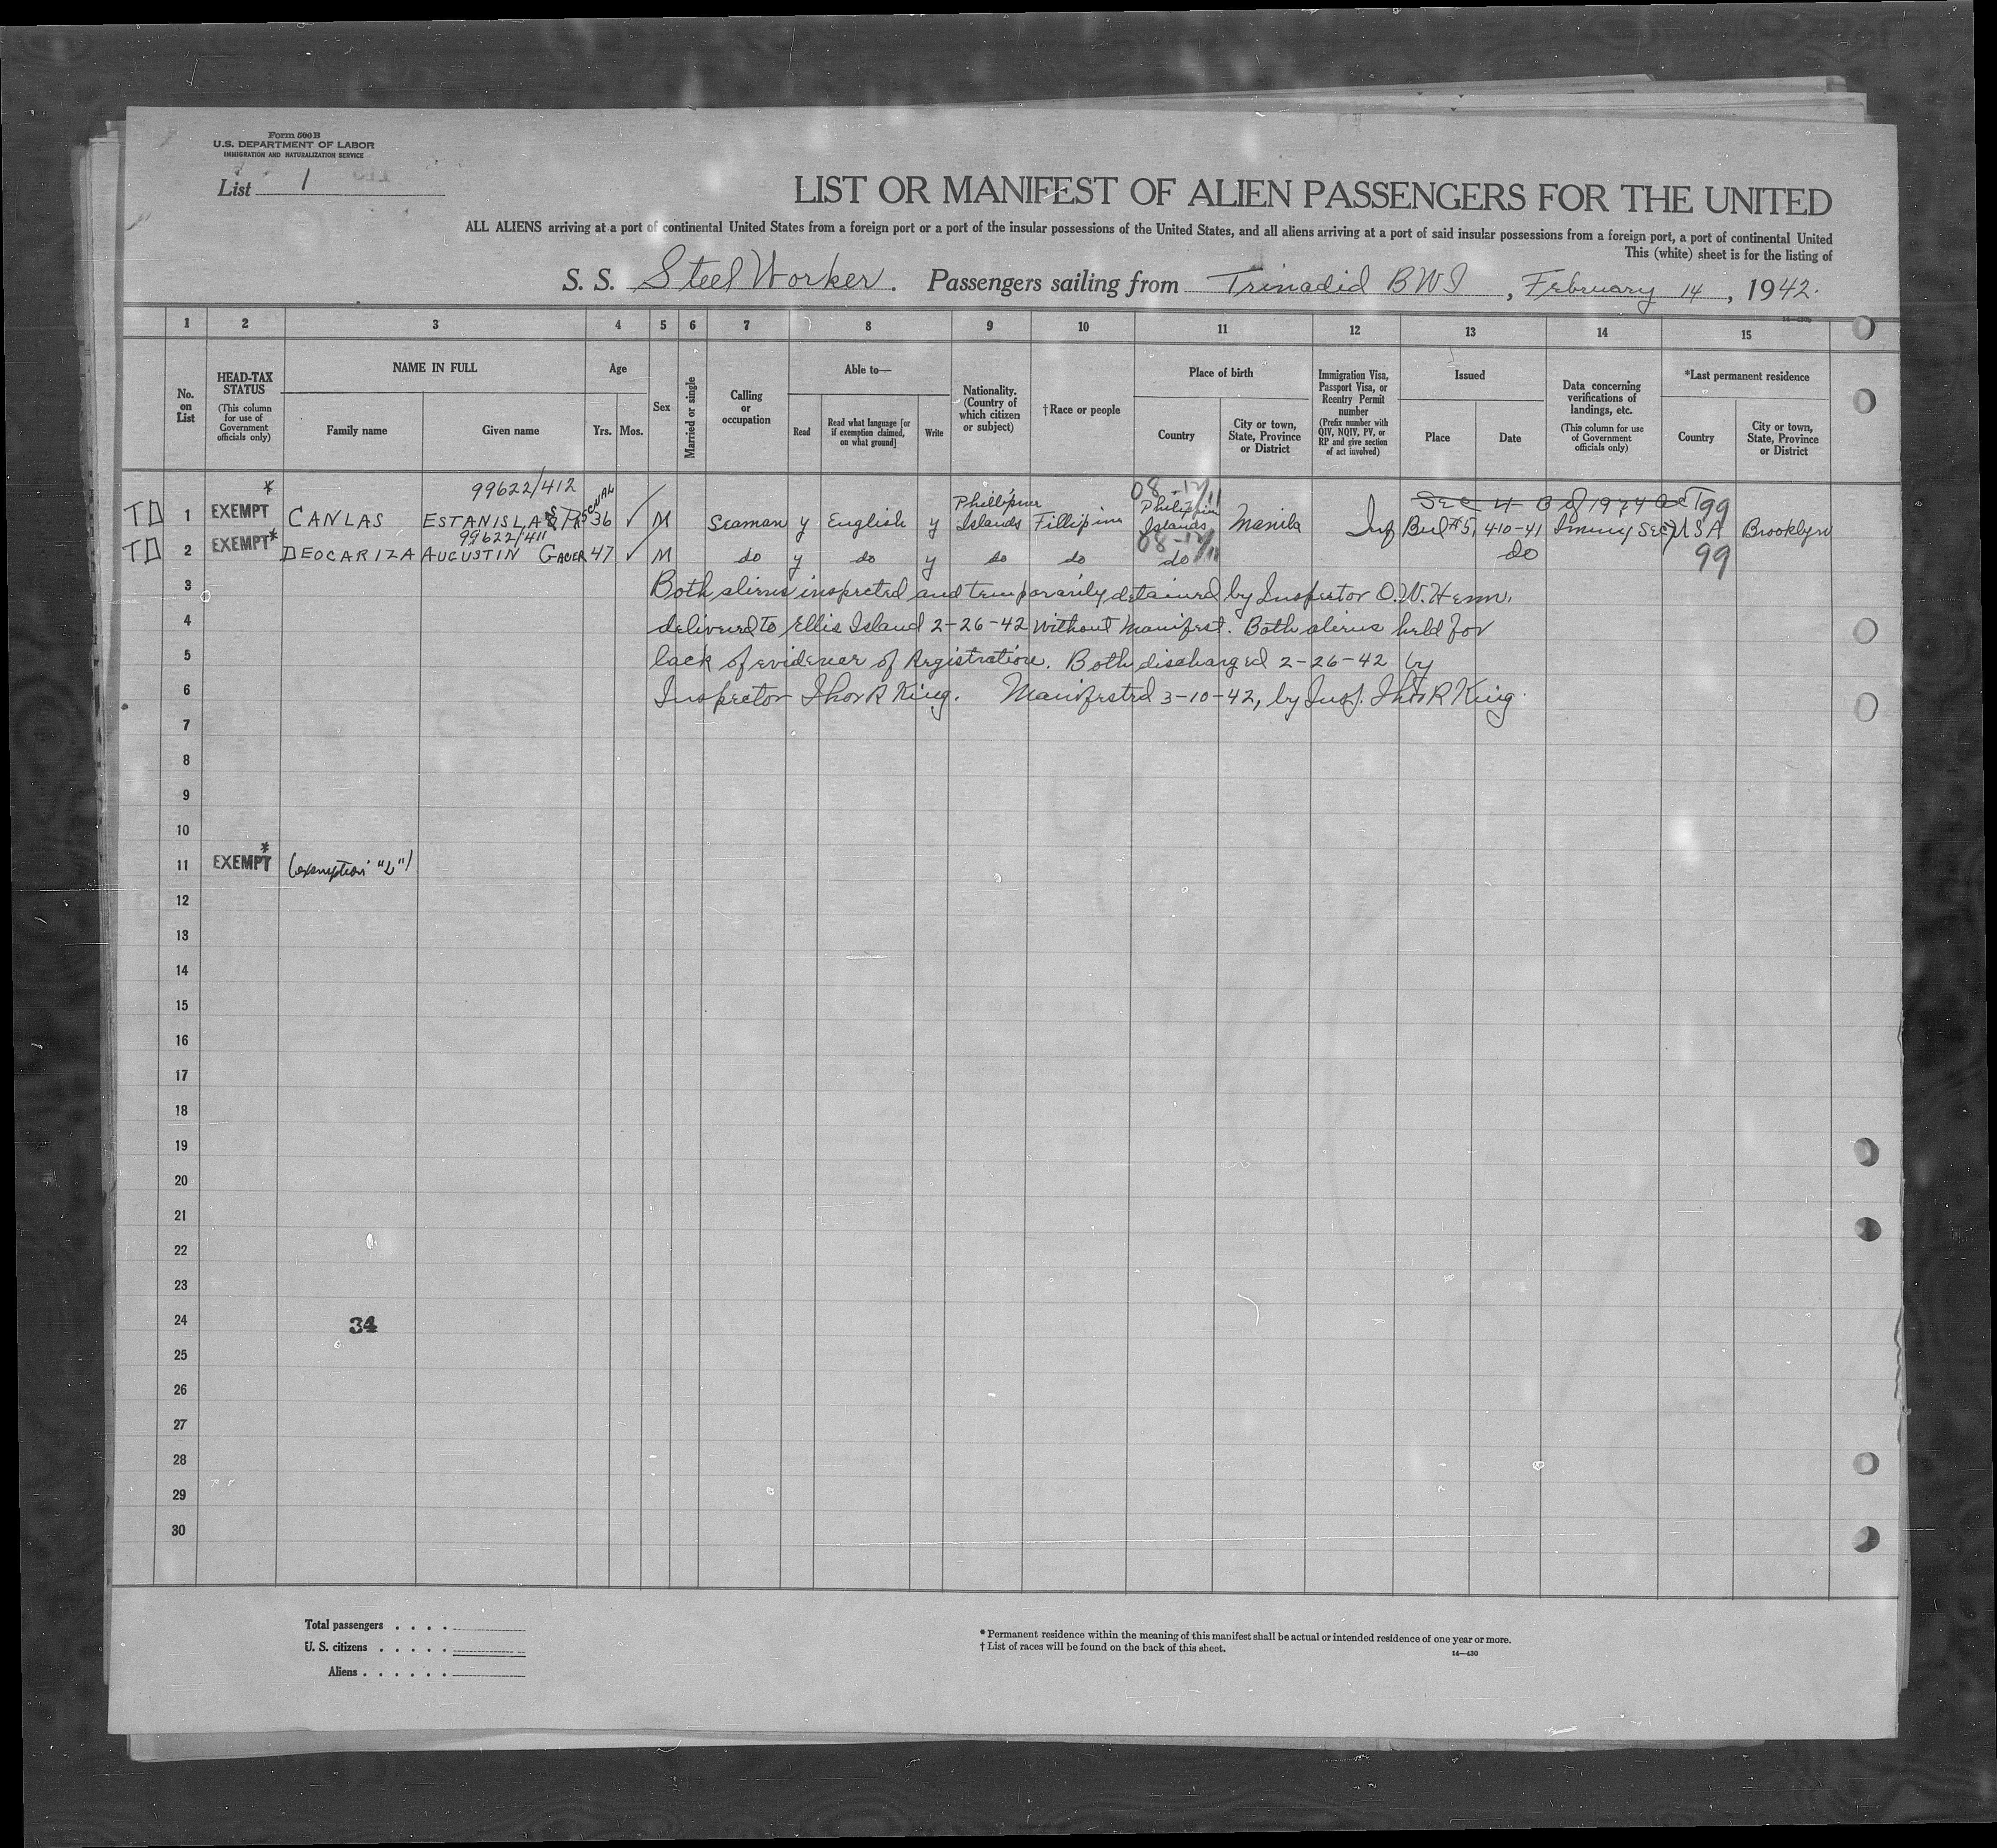 Form 500 B
U.S. DEPARTMENT OF LABOR
IMMIGRATION AND NATURALIZATION SERVICE
List 1
LIST OR MANIFEST OF ALIEN PASSENGERS FOR THE UNITED
ALL ALIENS arriving at a port of continental United States from a foreign port or a port of the insular possessions of the United States, and all aliens arriving at a port of said insular possessions from a foreign port, a port of continental United
This (white) sheet is for the listing of
S. S. Steel Worker. Passengers sailing from Trinadid BWI, February 14, 1942.
1 2 3 4 5 6 7 8 9 10 11 12 13 14 15
No. on List
HEAD-TAX STATUS
(This column for use of Government officials only)
NAME IN FULL
Family name
Given name
Age
Yrs. Mos.
Sex
Married or single
Calling or occupation
Able to—
Read
Read what language [or if exemption claimed, on what ground]
Write
Nationality. (Country of which citizen or subject)
†Race or people
Place of birth
Country
City or town, State, Province or District
Immigration Visa, Passport Visa, or Reentry Permit number
(Prefix number with QIV, NQIV, PV, or RP and give section of act involved)
Issued
Place
Date
Data concerning verifications of landings, etc.
(This column for use of Government officials only)
*Last permanent residence
Country
City or town, State, Province or District
99622/412
TD 1 EXEMPT * CANLAS ESTANISLAO PASCUAL 36 ✓ M Seaman y English y Phillipine Islands Fillipino Philippin Islands Manila Inf Bul #5, 4-10-41 Immig Sec USA Brooklyn
Sec 4- B of 1924 act 99
99622/411
TD 2 EXEMPT* DEOCARIZA AUGUSTIN 47 ✓ M do y do y do do do do 99
3 Both aliens inspected and temporarily detained by Inspector O.W. Henn,
4 delivered to Ellis Island 2-26-42 without manifest. Both aliens held for
5 lack of evidence of Registration. Both discharged 2-26-42 by
6 Inspector Thos R King. Manifested 3-10-42, by Insp. Thos R King.
7
8
9
10
11 EXEMPT * (exemption "L")
12
13
14
15
16
17
18
19
20
21
22
23
24 34
25
26
27
28
29
30
Total passengers . . . .
U. S. citizens . . . . .
Aliens . . . . . .
* Permanent residence within the meaning of this manifest shall be actual or intended residence of one year or more.
† List of races will be found on the back of this sheet.
14—430